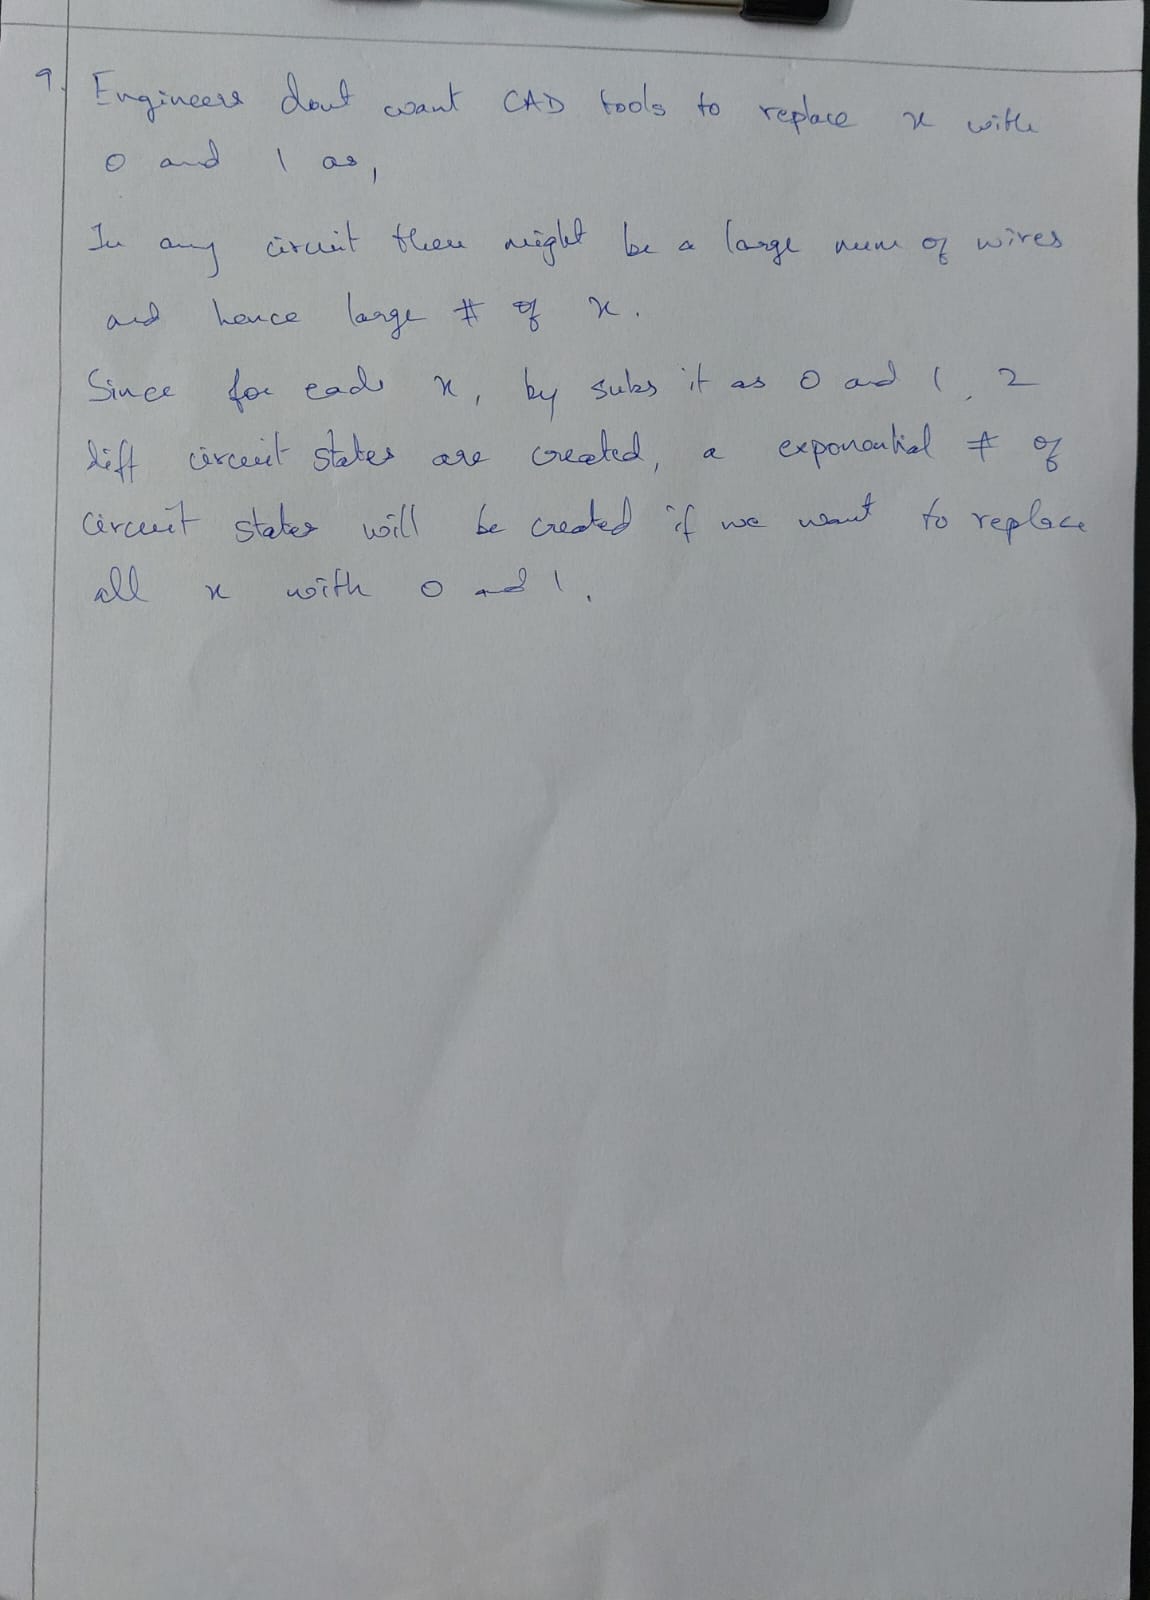 9. Engineers dont want CAD tools to replace x with
0 and 1 as,
In any circuit there might be a large num of wires
and hence large # of x.
Since for each x, by subs it as 0 and 1, 2
diff circuit states are created, a exponential # of
circuit states will be created if we want to replace
all x with 0 and 1.